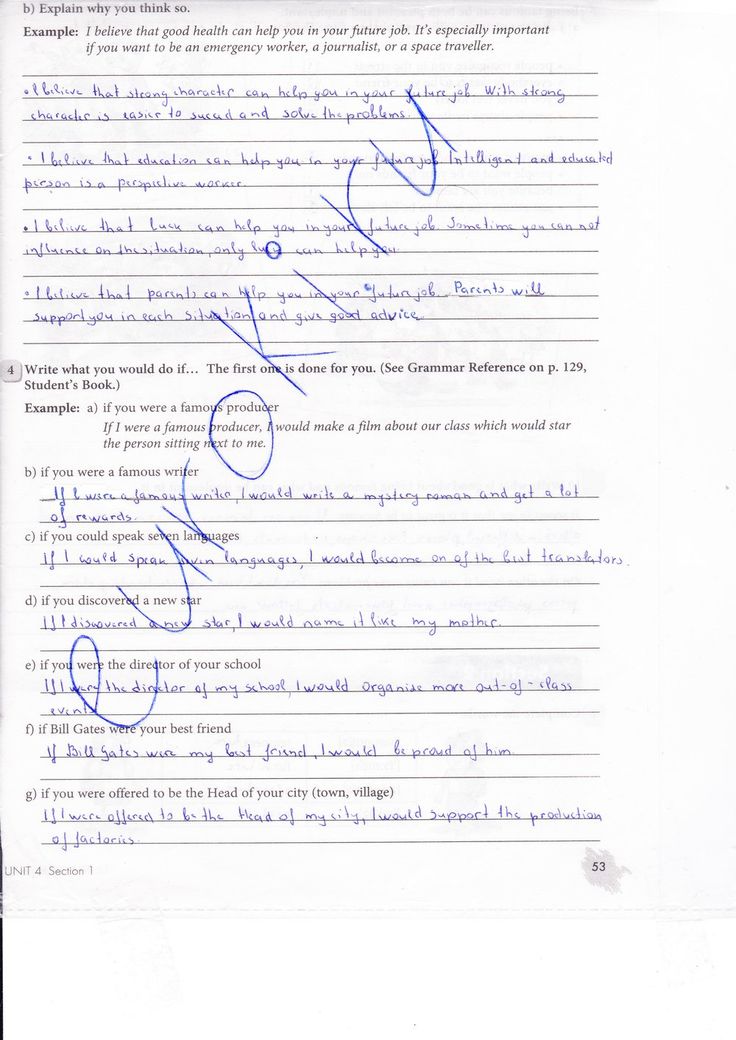 b) Explain why you think so.
Example: I believe that good health can help you in your future job. It's especially important
if you want to be an emergency worker, a journalist, or a space traveller.
• I believe that strong character can help you in your future job. With strong
character is easier to succed and solve the problems.
• I believe that education can help you in your future job Intelligent and educated
person is a perspective worker.
• I believe that luck can help you in your future job Sometime you can not
influence on the situation, only luck can help you
• I believe that parents can help you in your future job. Parents will
support you in each situation and give good advice
4 Write what you would do if... The first one is done for you. (See Grammar Reference on p. 129,
Student's Book.)
Example: a) if you were a famous producer
If I were a famous producer, I would make a film about our class which would star
the person sitting next to me.
b) if you were a famous writer
If I were a famous writer, I would write a mystery roman and get a lot
of rewards.
c) if you could speak seven languages
If I could speak seven languages, I would become on of the best translators.
d) if you discovered a new star
If I discovered a new star, I would name it like my mother.
e) if you were the director of your school
If I were the director of my school, I would organise more out-of-class
events
f) if Bill Gates were your best friend
If Bill Gates were my best friend, I would be proud of him.
g) if you were offered to be the Head of your city (town, village)
If I were offered to be the Head of my city, I would support the production
of factories.
UNIT 4 Section 1
53